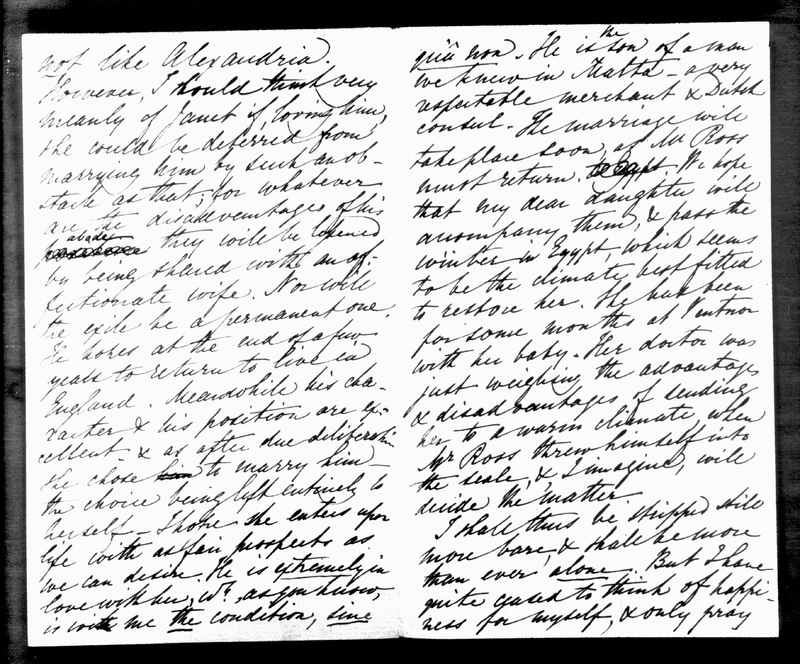 not like Alexandria.
However, I should think very
meanly of Janet if, loving him,
she could be deterred from
marrying him by such an ob-
stacle as that; for whatever
are the disadvantages of his
abode, they will be lessened
by being shared with an af-
fectionate wife. Nor will
the exile be a permanent one.
He hopes at the end of a few
years to return to live in
England. Meanwhile his cha-
racter & his position are ex-
cellent - & as after due deliberation
she chose him to marry him -
the choice being left entirely to
herself - I hope she enters upon
life with as fair prospects as
we can desire. He is extremely in
love with her, wh, as you know,
is with me the condition, sine
quâ non. He is the son of a man
we knew in Malta - a very
respectable merchant & Dutch
consul. The marriage will
take place soon, as Mr Ross
must return. We hope
that my dear daughter will
accompany them, & pass the
winter in Egypt, which seems
to be the climate best fitted
to restore her. She has been
for some months at Ventnor
with her baby. Her doctor was
just weighing the advantages
& disadvantages of sending
her to a warm climate, when
Mr Ross threw himself into
the scale, & I imagine, will
decide the matter.
I shall thus be stripped still
more bare, & shall be more
than ever alone. But I have
quite ceased to think of happi-
ness for myself, & only pray